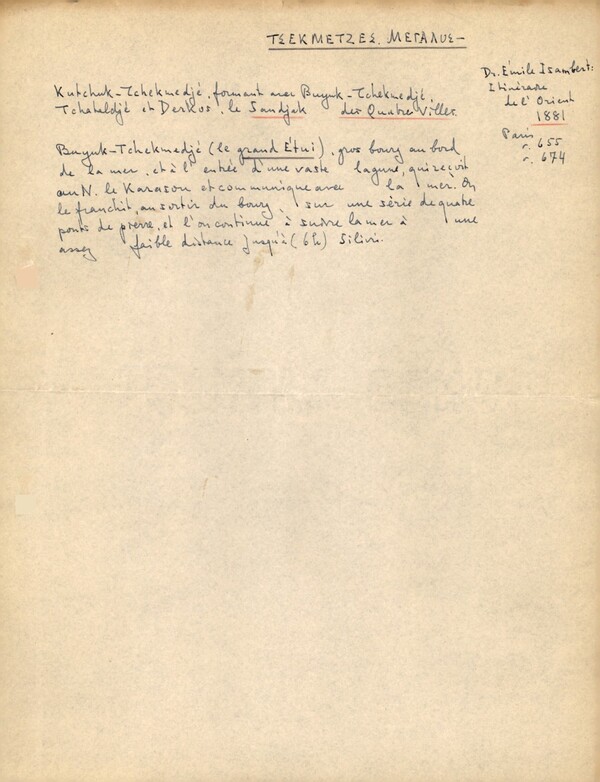 ΤΣΕΚΜΕΤΖΕΣ, ΜΕΓΑΛΟΣ-
Dr. Émile Isambert:
Itinéraire
de l'Orient
1881
Paris
σ. 655
σ. 674
Kutchuk-Tchekmedjé, formant avec Buyuk-Tchekmedjé,
Tchataldjé et Derkos, le Sandjak des Quatre Villes.
Buyuk-Tchekmedjé (le grand Etui), gros bourg au bord
de la mer, et à l'entrée d'une vaste lagune, qui reçoit
au N. le Karasou et communique avec la mer. On
le franchit, au sortir du bourg, sur une série de quatre
ponts de pierre, et l'on continue à suivre la mer à une
assez faible distance jusqu'à (6h) Silivri.